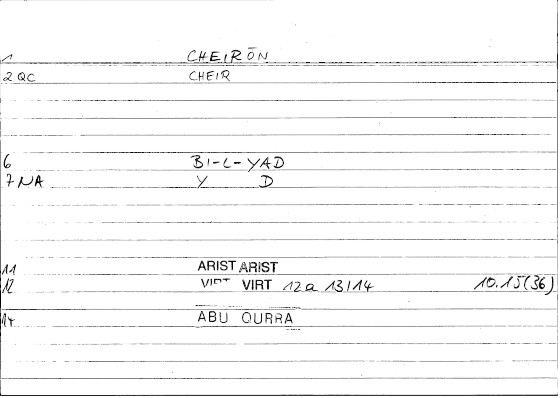 1 CHEIRŌN
2 QC CHEIR
6 BI-L-YAD
7 NA Y D
11 ARIST ARIST
12 VIRT VIRT 12a 13/14 10.15(36)
14 ABU QURRA